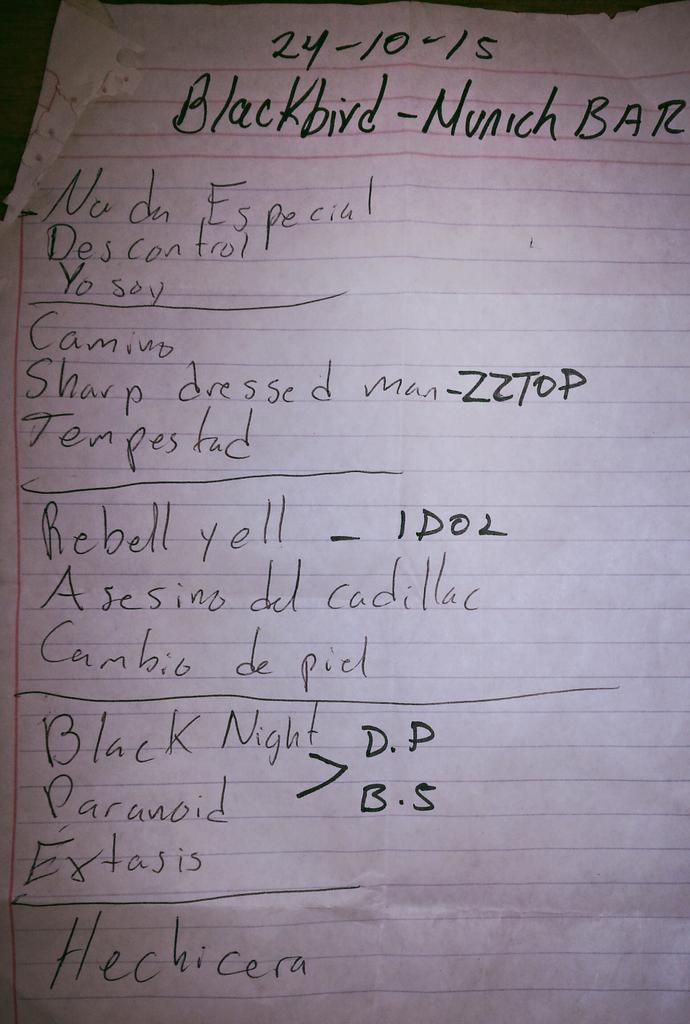 24-10-15
Blackbird - Munich BAR
- Nada Especial
Descontrol
Yo soy
Camino
Sharp dressed man - ZZTOP
Tempestad
Rebell yell - IDOL
Asesino del cadillac
Cambio de piel
Black Night > D.P
Paranoid B.S
Éxtasis
Hechicera